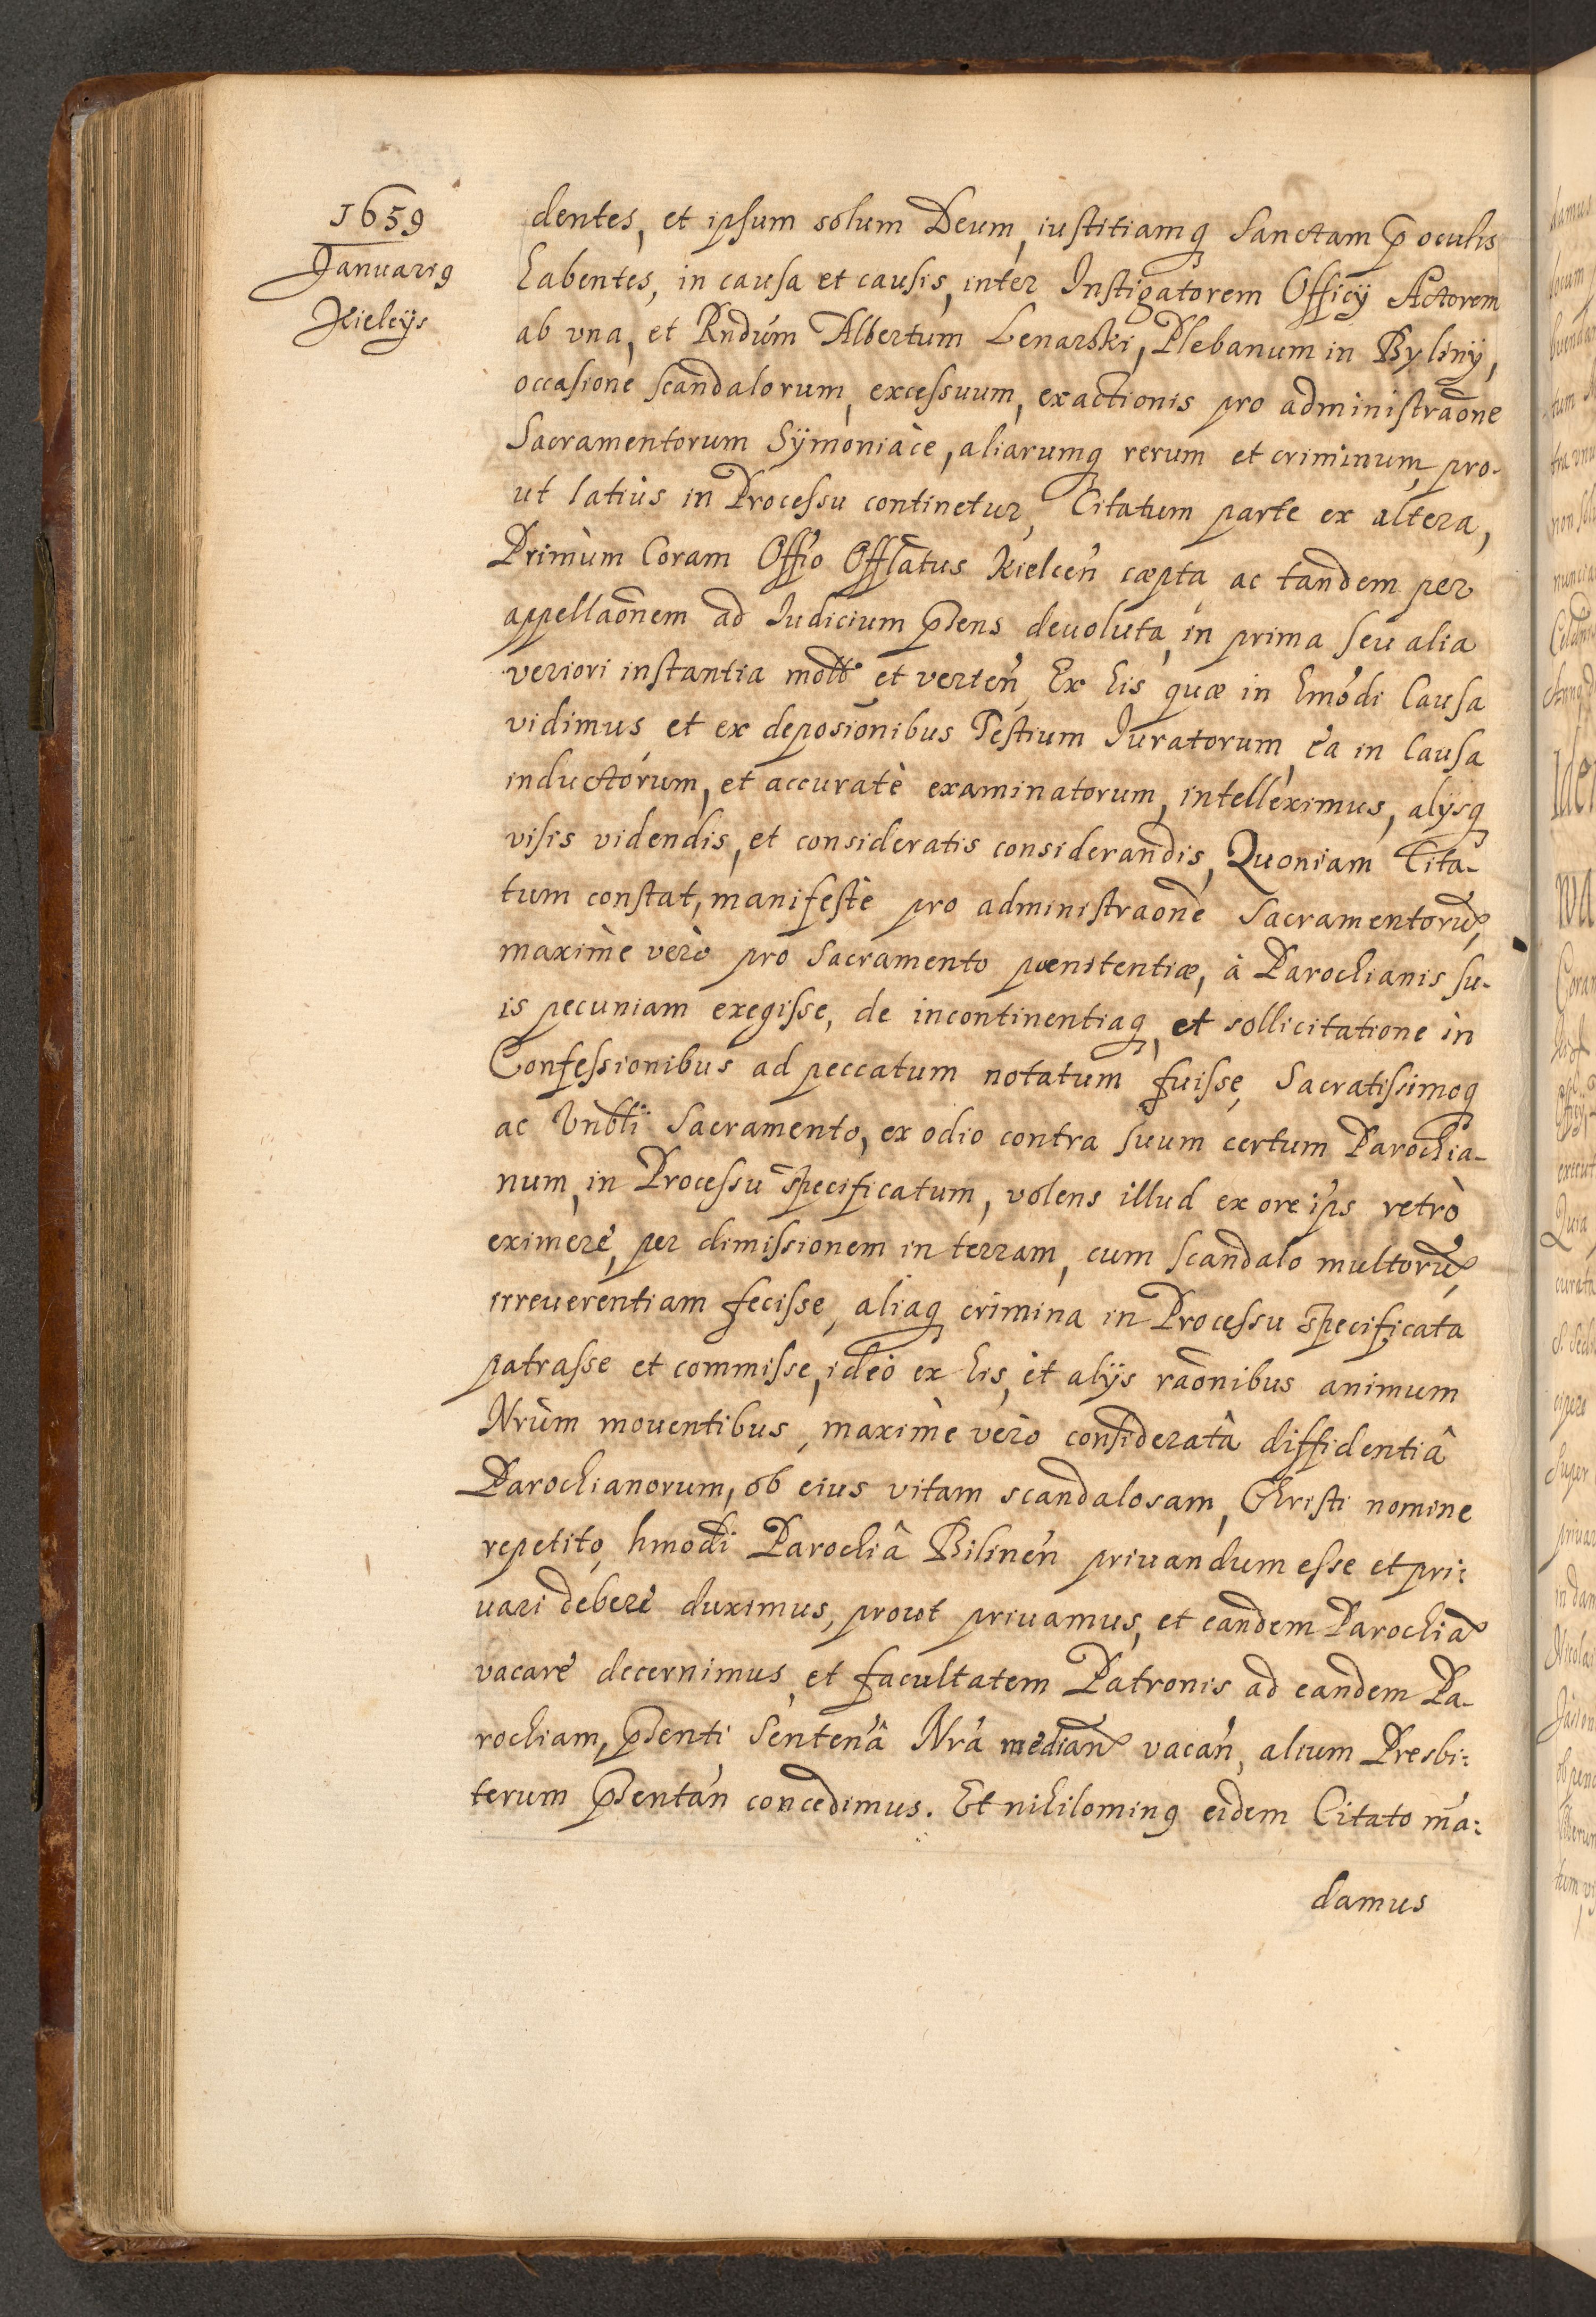 1659
Januarig
Kielcijs
dentes, et ipsum solum Deum, iustitiamq̢ Sanctam p̄ oculis
habentes, in causa et causis, inter Instigatorem Officÿ Actorem
ab vna, et Rndúm Albertum Lenarski, Plebanum in Bylinÿ,
occasione scandalorum, excessuum, exactionis pro administraōne
Sacramentorum Sÿmoniacè, aliarumq̢ rerum et criminum, pro-
ut latiùs in Processu continetur, Citatum parte ex altera,
Primùm Coram Offi̇o Offlātus Kielceń cæpta ac tandem per
appellaōnem ad Iudicium p̄sens deuoluta, in prima seu alia
veriori instantia mot̄ et verteń, Ex his quæ in hmōdi Causa
vidimus et ex deposiōnibus Testium Iuratorum, eā in Causa
inductorum, et accuratè examinatorum, intelleximus, alÿsq̢
visis videndis, et consideratis considerandis, Quoniam Cita-
tum constat, manifestè pro administraōne Sacramentorū,
maximè verò pro Sacramento pœnitentiæ, à Parochianis su-
is pecuniam exegisse, de incontinentiaq̢, et sollicitatione in
Confessionibus ad peccatum notatum fuisse, Sacratissimoq̢
ac Vnbl̄i Sacramento, ex odio contra suum certum Parochia-
num, in Processu specificatum, volens illud ex ore ips̓ retrò
eximere, per dimissionem in terram, cum scandalo multorū,
irreuerentiam fecisse, aliaq̢ crimina in Processu specificata
patrasse et commisse, ideò ex his, et alÿs raōnibus animum
Nrùm mouentibus, maximè verò consideratâ diffidentiâ
Parochianorum, ob eius vitam scandalosam, Christi nomine
repetito, hmōdi Parochiâ Bilineń priuandum esse et pri:
uari debere duximus, prout priuamus, et eandem Parochiā
vacare decernimus, et facultatem Patronis ad eandem Pa-
rochiam, p̄senti Senteńâ Nrá mediań vacań, alium Presbi:
terum p̄sentań concedimus. Et nihilominq̢ eidem Citato mā:
damus